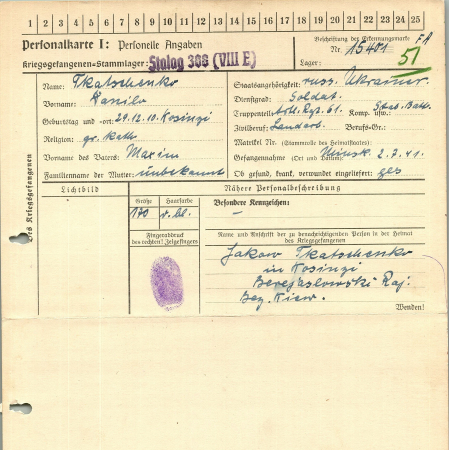 1 2 3 4 5 6 7 8 9 10 11 12 13 14 15 16 17 18 19 20 21 22 23 24 25
Personalkarte I: Personelle Angaben
Kriegsgefangenen-Stammlager: Stalag 308 (VIII E)
Beschriftung der Erkennungsmarke
Nr. 15401
Lager:
51
Des Kriegsgefangenen
Name: Tkatschenko
Vorname: Danilo
Geburtstag und -ort: 29.12.10. Kosinzi
Religion: gr. kath.
Vorname des Vaters: Maxim
Familienname der Mutter: unbekannt
Staatsangehörigkeit: russ. Ukrainer
Dienstgrad: Soldat.
Truppenteil: Art. Rgt. 61. Komp. usw.: Stab. Batt.
Zivilberuf: Landarb. Berufs-Gr.:
Matrikel Nr. (Stammrolle des Heimatstaates):
Gefangennahme (Ort und Datum): Minsk. 2.7.41.
Ob gesund, krank, verwundet eingeliefert: ges
Lichtbild
Nähere Personalbeschreibung
Größe
Haarfarbe
170
d. bl.
Besondere Kennzeichen:
–
Fingerabdruck
des rechten! Zeigefingers
Name und Anschrift der zu benachrichtigenden Person in der Heimat
des Kriegsgefangenen
Jakow Tkatschenko
in Kosinzi
Berejaslowski Raj.
Bez. Kiew.
Wenden!